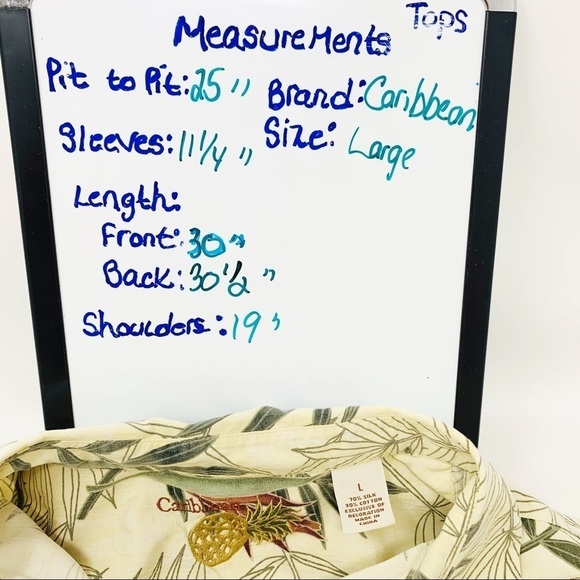 Tops
Measurements
Pit to Pit: 25"
Brand: Caribbean
Sleeves: 11 1/4"
Size: Large
Length:
Front: 30"
Back: 30 1/2"
Shoulders: 19"
Caribbean
L
70% SILK
30% COTTON
EXCLUSIVE OF
DECORATION
MADE IN
CHINA